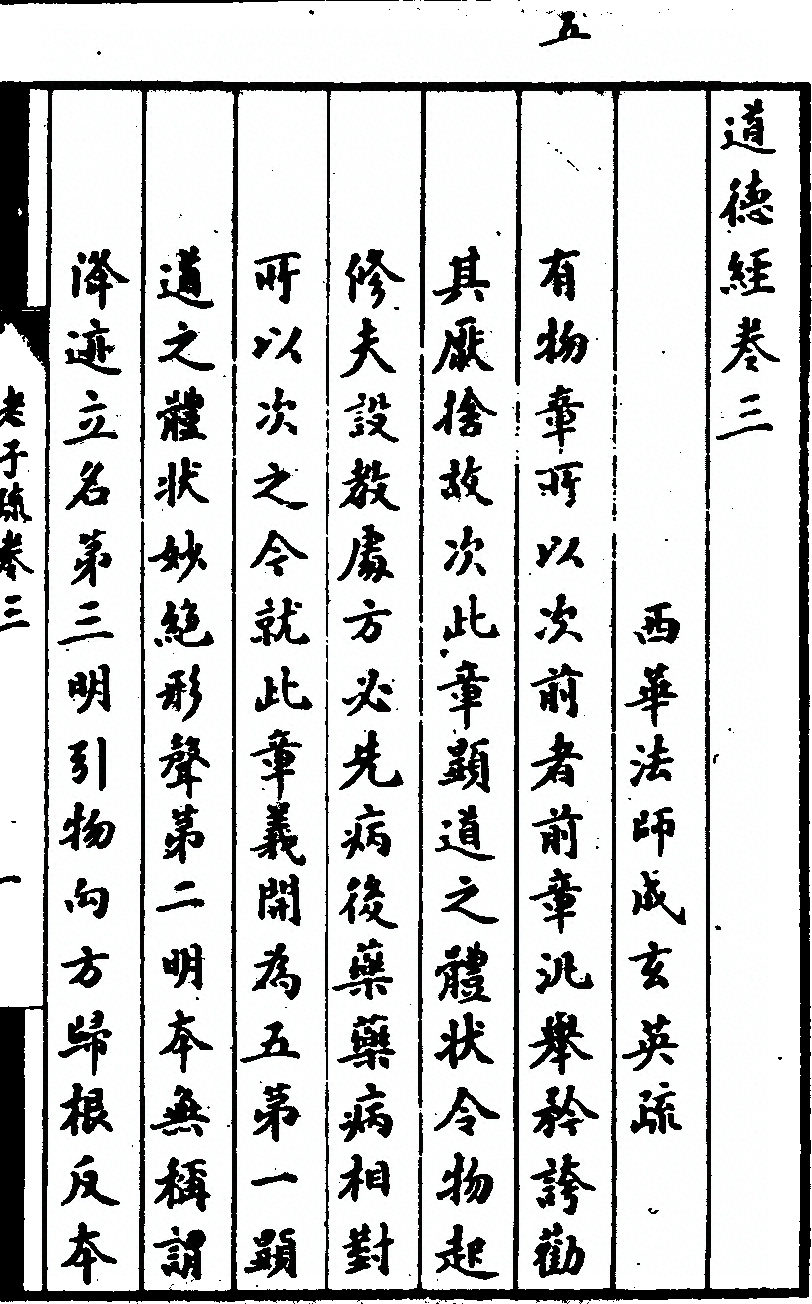 五
道德經卷三
西華法師成玄英疏
有物章所以次前者前章汎舉矜誇勸
其厭捨故次此章顯道之體状令物起
修夫設教處方必先病後藥藥病相對
所以次之今就此章義開為五第一顯
道之體状妙絶形聲第二明本無稱謂
降迹立名第三明引物向方歸根反本
老子疏卷三
一